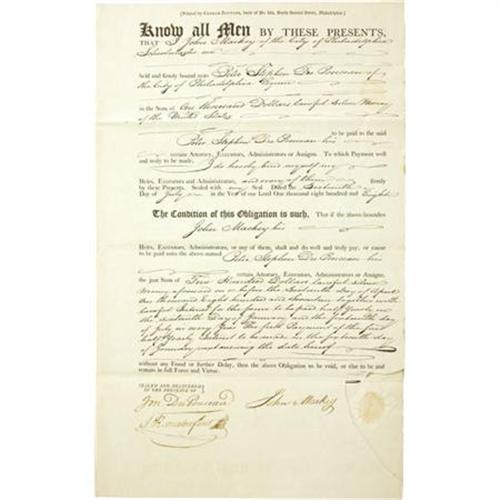 [Printed by
Know all Men BY THESE PRESENTS,
THAT I John Mackey of the City of Philadelphia
am
held and firmly bound unto Peter Stephen Du Ponceau of
the City of Philadelphia
in the Sum of One Thousand Dollars lawful silver Money
of the United States
to be paid to the said
Peter Stephen Du Ponceau his
certain Attorney, Executors, Administrators or Assigns. To which Payment well
and truly to be made, I do hereby bind myself my
Heirs, Executors and Administrators, and every of them firmly
by these Presents. Sealed with my Seal Dated the Sixteenth
Day of July in the Year of our Lord One thousand eight hundred and Eight
The Condition of this Obligation is such, That if the above-bounden
John Mackey his
Heirs, Executors, Administrators, or any of them, shall and do well and truly pay, or cause
to be paid unto the above named Peter Stephen Du Ponceau his
certain Attorney, Executors, Administrators or Assigns,
the just Sum of Hundred Dollars lawful silver
Money aforesaid on or before the Sixteenth day of
One thousand Eight hundred and together with
lawful Interest for the same to be paid half yearly on
the sixteenth days of January and the sixteenth day
of July in every Year the first Payment of the first
half Yearly Interest to be made on the sixteenth day
of January next ensuing the date hereof
without any Fraud or further Delay, then the above Obligation to be void, or else to be and
remain in full Force and Virtue.
SEALED AND DELIVERED
IN THE PRESENCE OF
Jno Du Ponceau
John Mackey